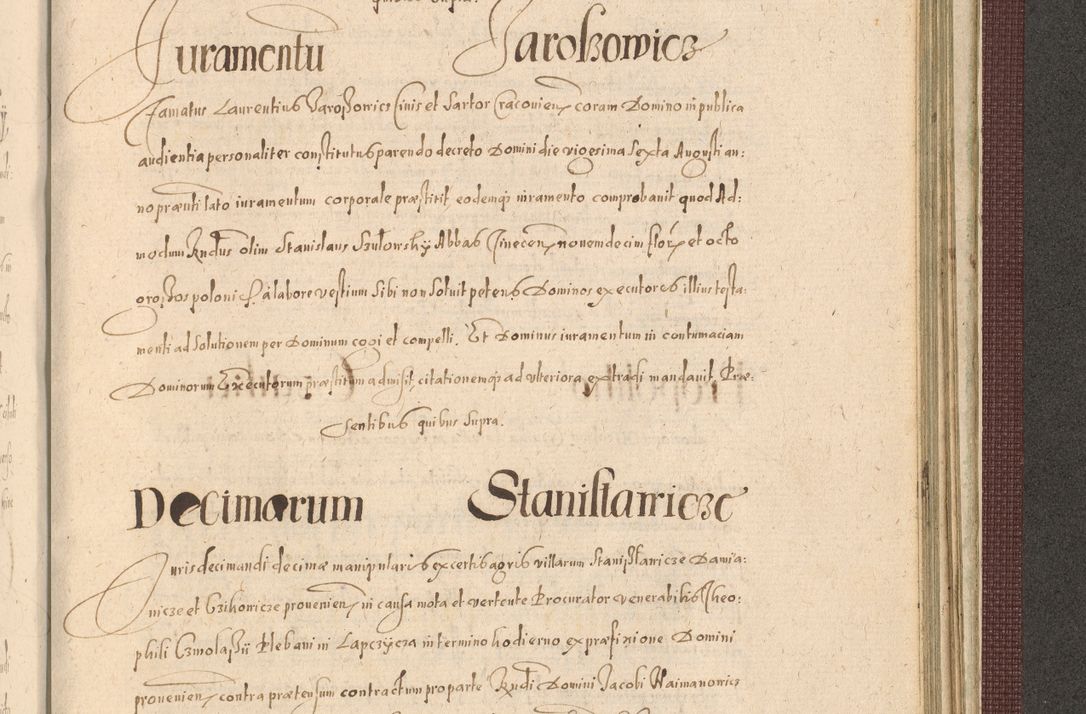 Juramentu Jaroszowicz
Famatus Laurentius Jaroszowics Civis et Sartor Cracovien coram Domino in publica
audientia personaliter constitutus parendo decreto Domini die vigesima Sexta Augusti an:
no præsenti lato iuramentum corporale præstitit eodemq iuramento comprobavit quod Ad:
modum Rndus olim Stanislaus Szulowsky Abbas novemdecim flor et octo
grossos poloni a labore vestium Sibi non Soluit petens Dominos executores illius testa:
menti ad Solutionem per Dominum cogi et compelli. Et Dominus iuramentum in contumaciam
Dominorum Executorum præstitum admisit, citationemq ad vlteriora extradi mandavit, Præ:
sentibus quibus Supra.
Decimarum Stanislawicze
Juris decimandi decimæ manipularis ex certis agris villarum Staniszlawicze Damia:
nicze et Czikowicze provenien in causa mota et vertente Procurator venerabilis Theo:
phili Czmolaszii Plebani in Lapczycza in termino hodierno ex præfixione Domini
provenien contra prætensum contractum pro parte Rndi Domini Jacobi Naimanowicz